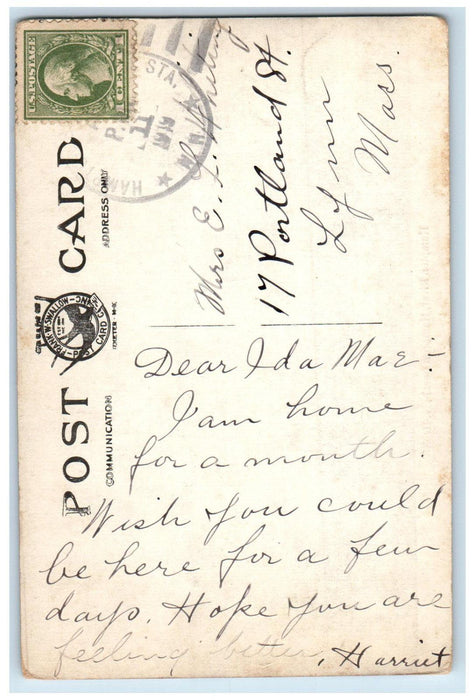 U.S. POSTAGE
1 CENT 1
STA.
POST CARD
ADDRESS ONLY
COMMUNICATION
FRANK W. SWALLOW
POST CARD CO. INC.
EXETER N.H.
Mrs E. L. Whiting
17 Portland St.
Lynn
Mass.
Dear Ida Mae:-
I am home
for a month.
Wish you could
be here for a few
days. Hope you are
feeling better,
Harriet